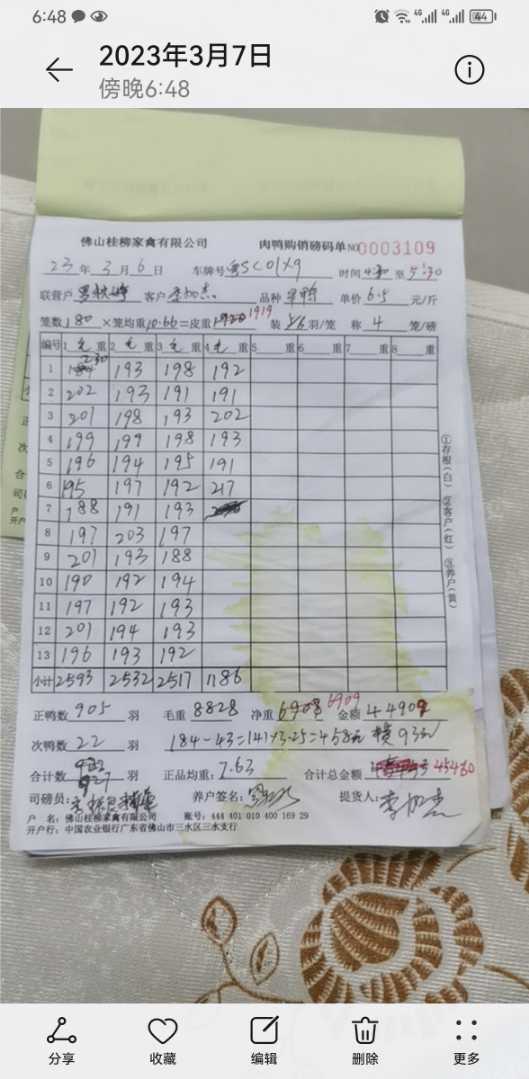 6:48
44
2023年3月7日
傍晚6:48
佛山桂柳家禽有限公司 肉鸭购销磅码单 NO 0003109
23年3月6日 车牌号 时间 4:30 至 5:30
联营户 客户 品种 单价 6.5 元/斤
笼数 180 ×笼均重 10.66 =皮重 1919 装 羽/笼 称 4 笼/磅
编号 1 毛 重 2 毛 重 3 毛 重 4 毛 重 5 重 6 重 7 重 8 重
1 230 193 198 192
2 202 193 191 191
3 201 198 193 202
4 199 199 198 193
5 196 194 195 191
6 195 197 192 217
7 188 191 193
8 197 203 197
9 201 193 188
10 190 192 194
11 197 192 193
12 201 194 193
13 196 193 192
小计 2593 2532 2517 1186
①存根(白) ②客户(红) ③养户(黄)
正鸭数 905 羽 毛重 8828 净重 6909 金额 44908
次鸭数 22 羽 184-43=141×3.25=458元 93元
合计数 927 羽 正品均重: 7.63 合计总金额 45460
司磅员: 养户签名: 提货人:
户 名: 佛山桂柳家禽有限公司 账号: 444 401 010 400 169 29
开户行: 中国农业银行广东省佛山市三水区三水支行
分享 收藏 编辑 删除 更多